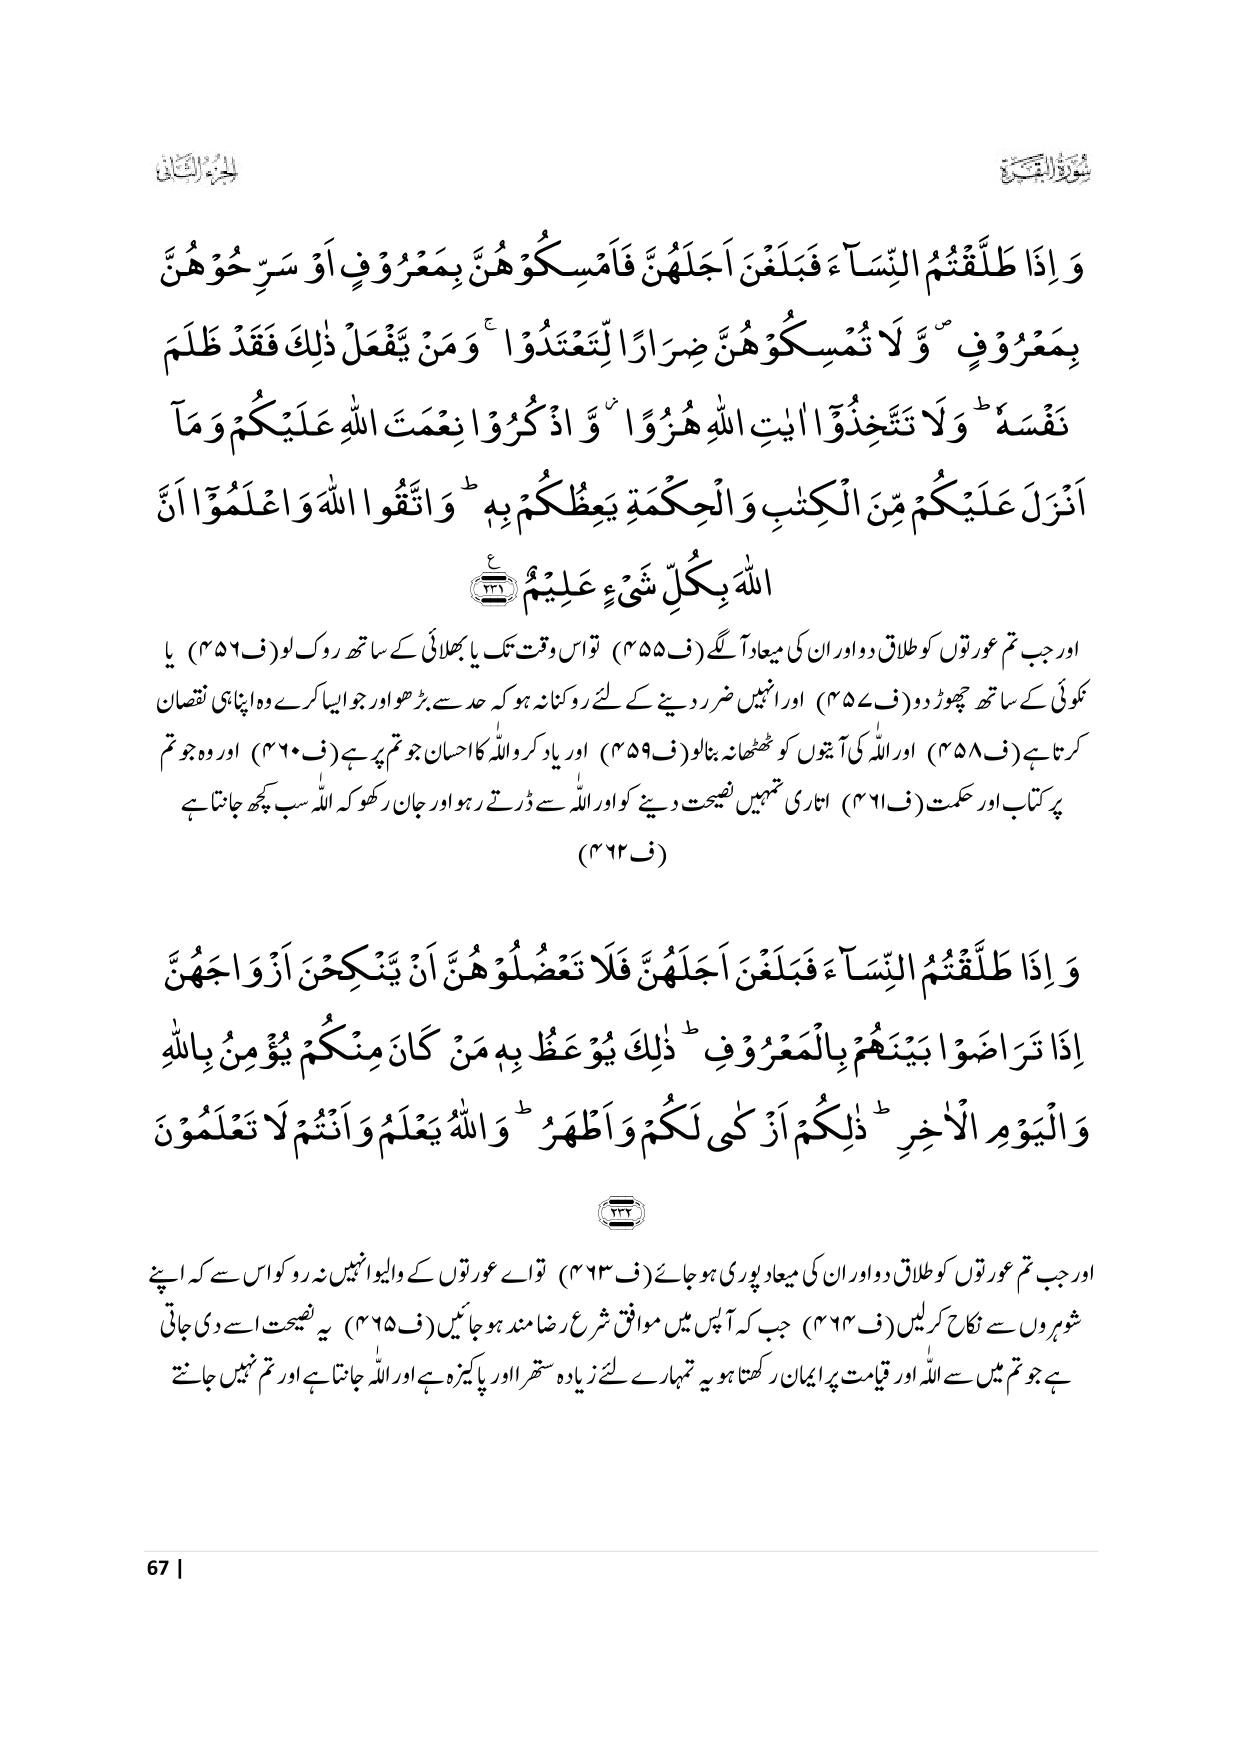 سُوْرَۃُ الْبَقَـرَۃِ
الجزء الثانی
وَ اِذَا طَلَّقْتُمُ النِّسَآءَ فَبَلَغْنَ اَجَلَهُنَّ فَاَمْسِكُوْهُنَّ بِمَعْرُوْفٍ اَوْ سَرِّحُوْهُنَّ
بِمَعْرُوْفٍ ۪ وَّ لَا تُمْسِكُوْهُنَّ ضِرَارًا لِّتَعْتَدُوْا ۚ وَ مَنْ یَّفْعَلْ ذٰلِكَ فَقَدْ ظَلَمَ
نَفْسَهٗ ؕ وَ لَا تَتَّخِذُوْۤا اٰیٰتِ اللّٰهِ هُزُوًا ۫ وَّ اذْكُرُوْا نِعْمَتَ اللّٰهِ عَلَیْكُمْ وَ مَاۤ
اَنْزَلَ عَلَیْكُمْ مِّنَ الْكِتٰبِ وَ الْحِكْمَةِ یَعِظُكُمْ بِهٖ ؕ وَ اتَّقُوا اللّٰهَ وَ اعْلَمُوْۤا اَنَّ
اللّٰهَ بِكُلِّ شَیْءٍ عَلِیْمٌ ﴿۲۳۱﴾ ع
اور جب تم عورتوں کو طلاق دو اور ان کی میعاد آلگے (ف۴۵۵) تو اس وقت تک یا بھلائی کے ساتھ روک لو (ف۴۵۶) یا
نکوئی کے ساتھ چھوڑ دو (ف۴۵۷) اور انہیں ضرر دینے کے لئے روکنا نہ ہو کہ حد سے بڑھو اور جو ایسا کرے وہ اپنا ہی نقصان
کرتا ہے (ف۴۵۸) اور اللّٰہ کی آیتوں کو ٹھٹھا نہ بنالو (ف۴۵۹) اور یاد کرو اللّٰہ کا احسان جو تم پر ہے (ف۴۶۰) اور وہ جو تم
پر کتاب اور حکمت (ف۴۶۱) اتاری تمہیں نصیحت دینے کو اور اللّٰہ سے ڈرتے رہو اور جان رکھو کہ اللّٰہ سب کچھ جانتا ہے
(ف۴۶۲)
وَ اِذَا طَلَّقْتُمُ النِّسَآءَ فَبَلَغْنَ اَجَلَهُنَّ فَلَا تَعْضُلُوْهُنَّ اَنْ یَّنْكِحْنَ اَزْوَاجَهُنَّ
اِذَا تَرَاضَوْا بَیْنَهُمْ بِالْمَعْرُوْفِ ؕ ذٰلِكَ یُوْعَظُ بِهٖ مَنْ كَانَ مِنْكُمْ یُؤْمِنُ بِاللّٰهِ
وَ الْیَوْمِ الْاٰخِرِ ؕ ذٰلِكُمْ اَزْكٰى لَكُمْ وَ اَطْهَرُ ؕ وَ اللّٰهُ یَعْلَمُ وَ اَنْتُمْ لَا تَعْلَمُوْنَ
﴿۲۳۲﴾
اور جب تم عورتوں کو طلاق دو اور ان کی میعاد پوری ہو جائے (ف۴۶۳) تو اے عورتوں کے والیو انہیں نہ روکو اس سے کہ اپنے
شوہروں سے نکاح کرلیں (ف۴۶۴) جب کہ آپس میں موافق شرع رضا مند ہو جائیں (ف۴۶۵) یہ نصیحت اسے دی جاتی
ہے جو تم میں سے اللّٰہ اور قیامت پر ایمان رکھتا ہو یہ تمہارے لئے زیادہ ستھرا اور پاکیزہ ہے اور اللّٰہ جانتا ہے اور تم نہیں جانتے
67 |